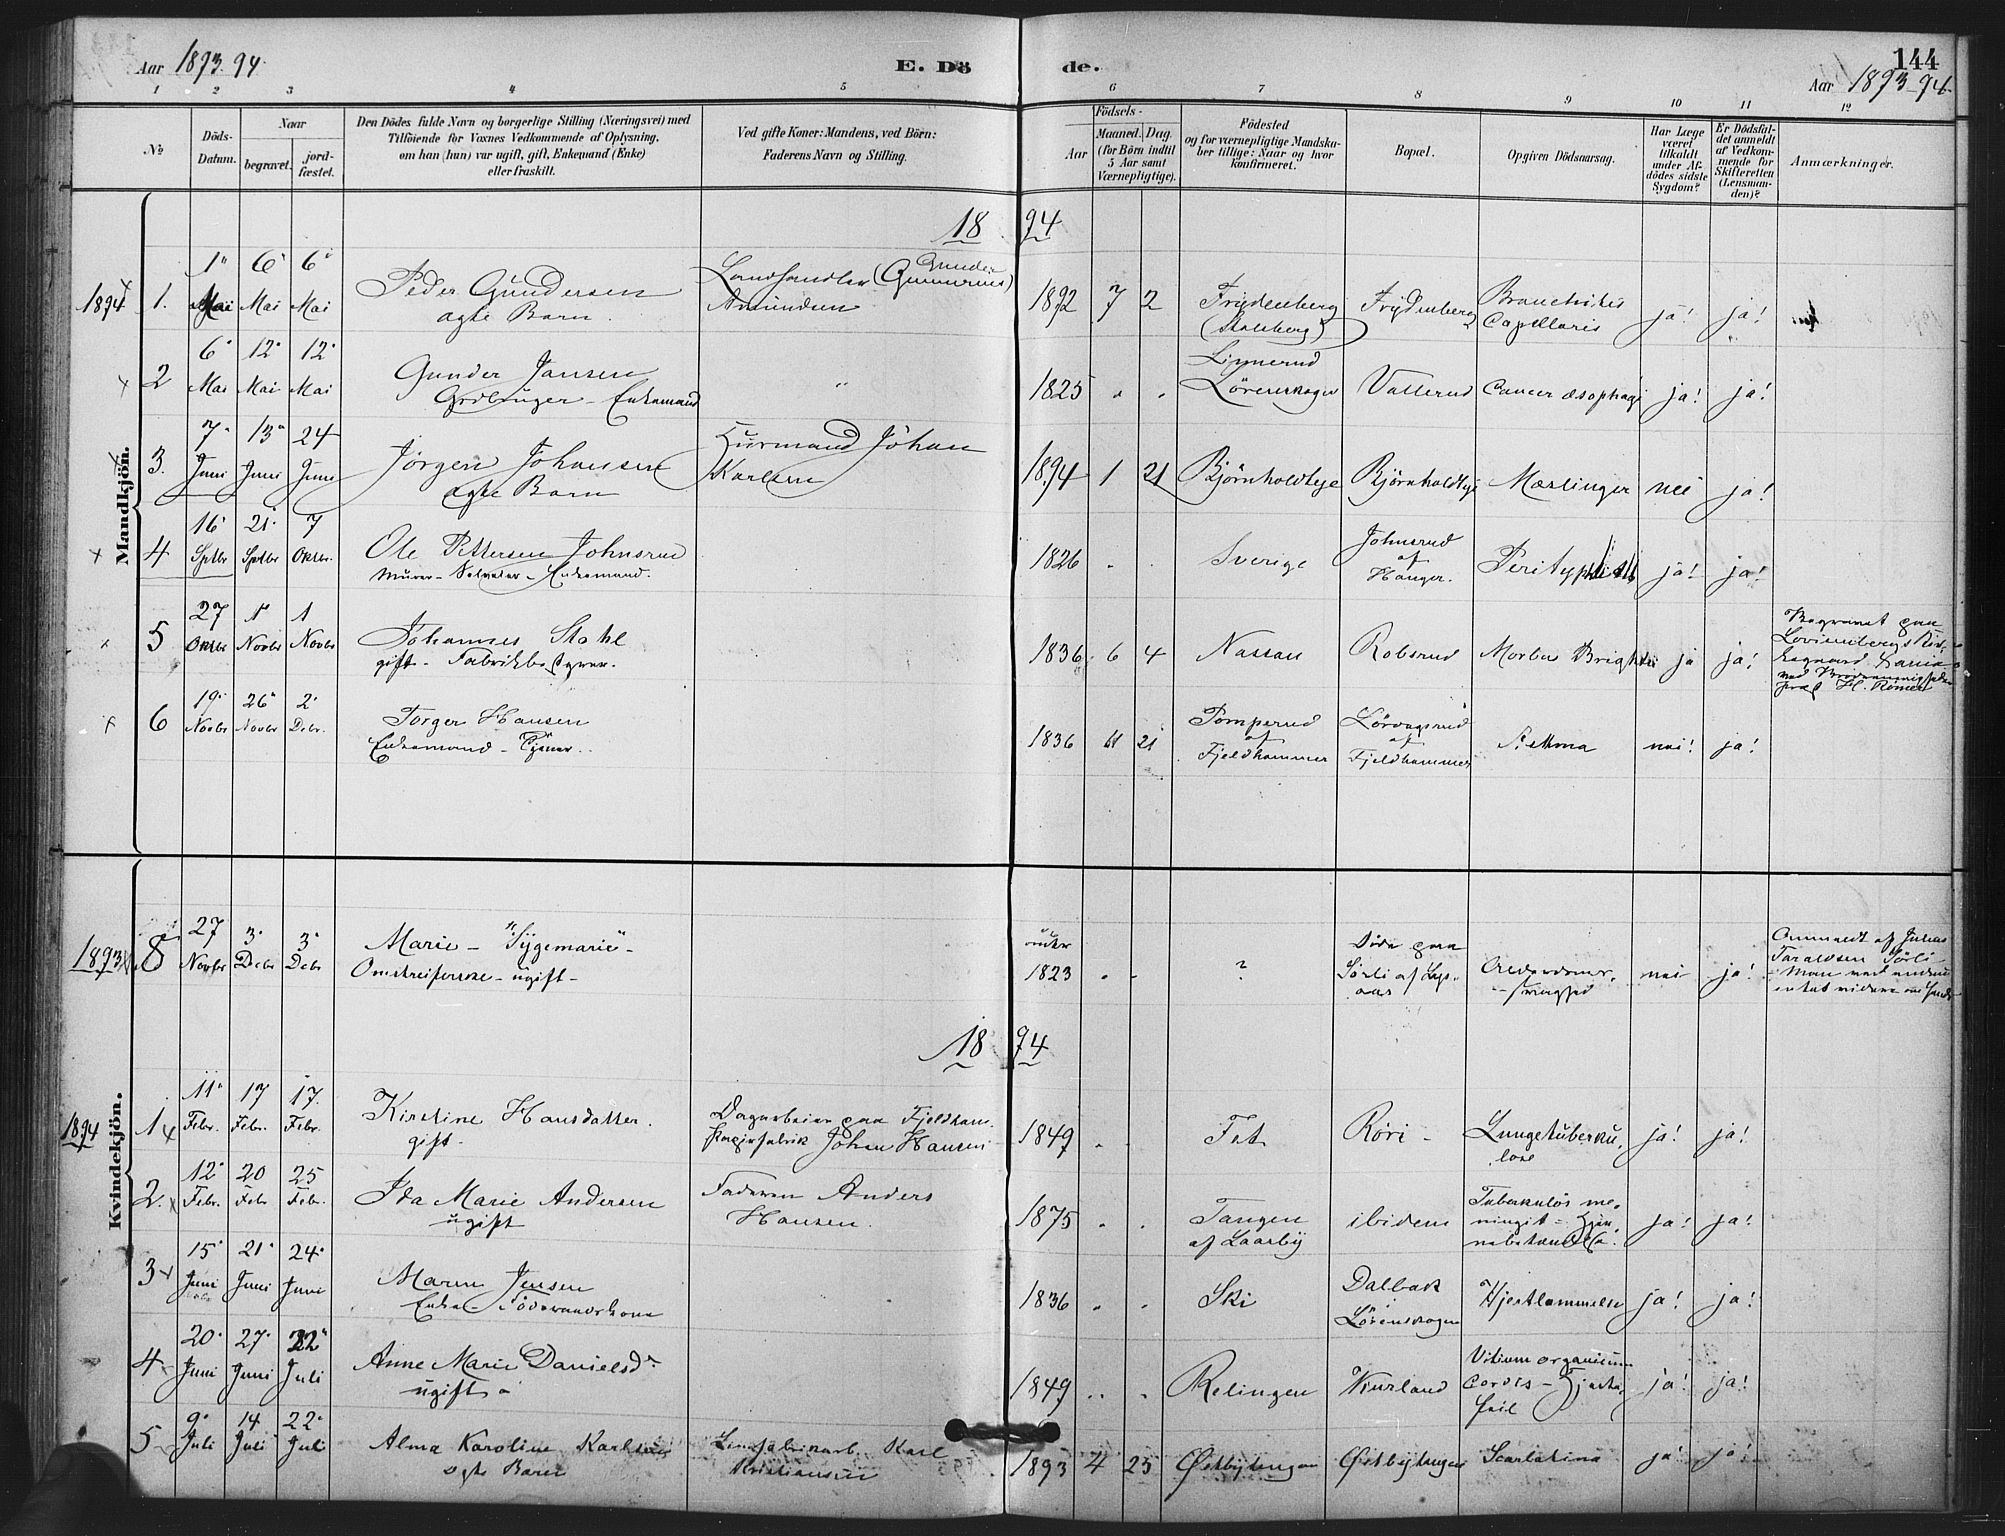 Aar 1893-94
E. Dö de.
144
Aar 1893-94
1 2 3 4 5 6 7 8 9 10 11 12
No
Döds-Datum.
Naar
begravet.
jord-fæstet.
Den Dödes fulde Navn og borgerlige Stilling (Næringsvei) med
Tilföiende for Voxnes Vedkommende af Oplysning,
om han (hun) var ugift, gift, Enkemand (Enke)
eller fraskilt.
Ved gifte Koner: Mandens, ved Börn:
Faderens Navn og Stilling.
Födsels-
Aar
Maaned. Dag.
(for Börn indtil
5 Aar samt
Værnepligtige).
Födested
og for værnepligtige Mandska-
ber tillige: Naar og hvor
konfirmeret.
Bopæl.
Opgiven Dödsaarsag.
Har Læge
været
tilkaldt
under Af-
dödes sidste
Sygdom?
Er Dödsfal-
det anmeldt
af Vedkom-
mende for
Skifteretten
(Lensman-
den)?
Anmærkninger.
Mandkjön.
18 94
1894 1. 1 Mai 6 Mai 6 Mai
Peder Gundersen
ægte Barn.
Landhandler
Amundsen
1892 7 2
Frydenberg
(Skaleberg)
Frydenberg
Bronchites
Capillaris
ja! ja!
2 6 Mai 12 Mai 12 Mai
Gunder Jansen
Enkemand
"
1825 " "
Linnerud
Lörenskogen
Vallerud
Cancer æsophagi
ja! ja!
3. 7 Juni 13 Juni 24 Juni
Jörgen Johansen
ægte Barn
Husmand Johan
Karlsen
1894 1 21
Bjørnholdteje
Bjørnholdteje
Mæslinger
nei ja!
4 16 Sptbr 21 Sptbr 7 Oktbr.
Ole Pettersen Johnsrud
Murer - Selveier - Enkemand.
1826 " "
Sverige
Johnsrud
af
Hauger.
Perityphlitis
ja! ja!
5 27 Oktbr 1 Novbr 1 Novbr
Johannes Stahl
gift - Fabrikbestyrer.
1836 6 4
Nassau
Robsrud
Morbus Brightii
ja ja!
Begravet paa
6 19 Novbr 26 Novbr 2 Debr.
Torger Hansen
Enkemand - Tjener.
1836 11 21
Pomperud
af
Fjeldhammer
Lörvagsrud
af
Fjeldhammer
Asthma
nei! ja!
Kvindekjön.
1893 8 27 Novbr 3 Debr 3 Debr
Marie - "Sygemarie" -
Omstreiferske - ugift -
1823 " "
?
Døde paa
Sörli af Lys-
aas
Alderdoms-
svaghed
nei ja!
Anmeldt af Julius
Taraldsen Sörli
18 94
1894 1 11 Febr. 17 Febr. 17. Febr.
Kirstine Hansdatter.
gift -
Dagarbeier paa Fjeldham.
Papirfabrik Johan Hansen
1849 " "
Fet
Röri -
Lungetuberku.
lose
ja! ja!
2. 12 Febr. 20 Febr 25 Febr.
Ida Marie Andersen
ugift
Faderen Anders
Hansen.
1875 " "
Tangen
af Laasby
ibidem
Tuberkulös me-
ningit -
ja! ja!
3 15 Juni 21 Juni 24 Juni
Maren Jensen
Enke - Föderaadskone
1836 " "
Ski
Dalbak
Lörenskogen
Hjertlammelse
ja! ja!
4 20 Juni 27 Juni 22 Juli
Anne Marie Danielsdr
ugift
1849 " "
Relingen
Kurland
Vitium organicum
Cordis - Hjerte-
feil
ja! ja!
5 9 Juli 14 Juli 22 Juli
Alma Karoline Karlsen
ægte Barn
Karl
Kristiansen
1893 4 25
Østbytangen
Østbytangen
Scarlatina
ja! ja!